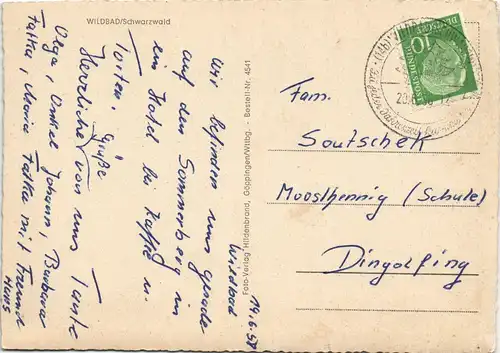 WILDBAD/Schwarzwald
Wildbad
19.6.57
Wir befinden uns gerade
auf den Sommerberg in
ein Hotel bei Kaffee u.
Torten.
Herzliche Grüße
von uns Tante
Olga, Onkel Johann, Barbara
Fatka, Maria Fatka mit Freund
Hans
Foto-Verlag Hildenbrand, Göppingen/Wttbg. - Bestell-Nr. 4541
DEUTSCHE
BUNDESPOST
10
Fam.
Soutschek
Moosthennig (Schule)
Dingolfing